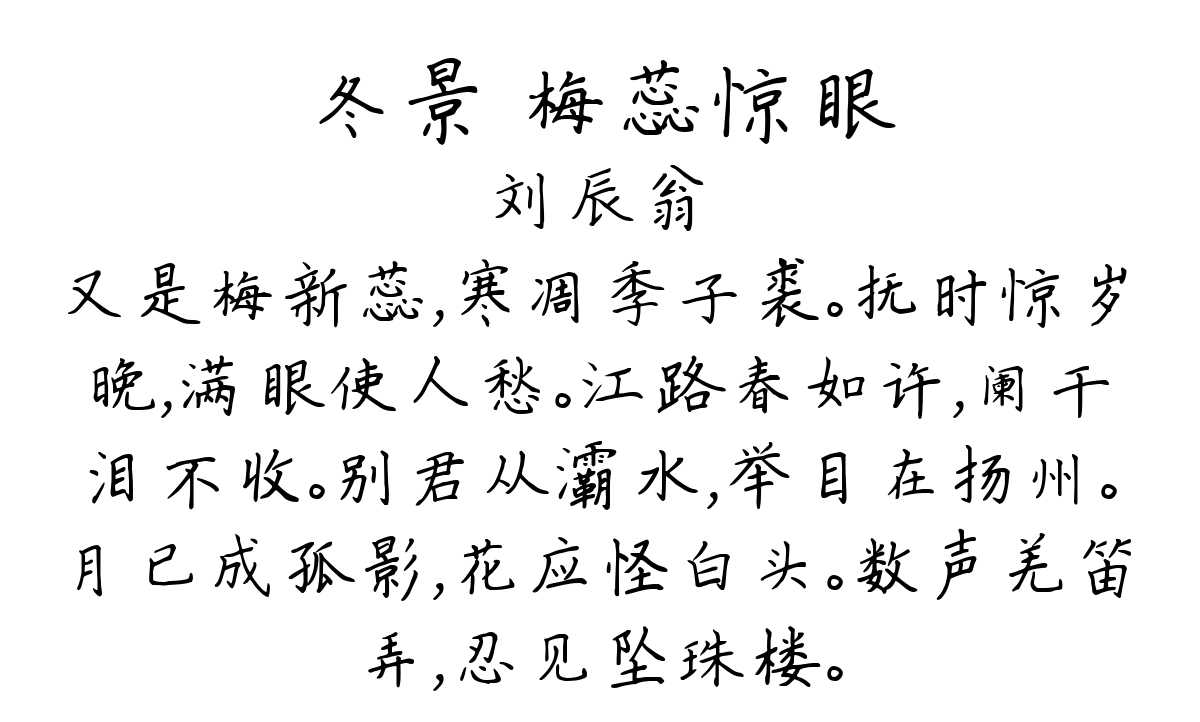 冬景 梅蕊惊眼
刘辰翁
又是梅新蕊,寒凋季子裘。抚时惊岁
晚,满眼使人愁。江路春如许,阑干
泪不收。别君从灞水,举目在扬州。
月已成孤影,花应怪白头。数声羌笛
弄,忍见坠珠楼。